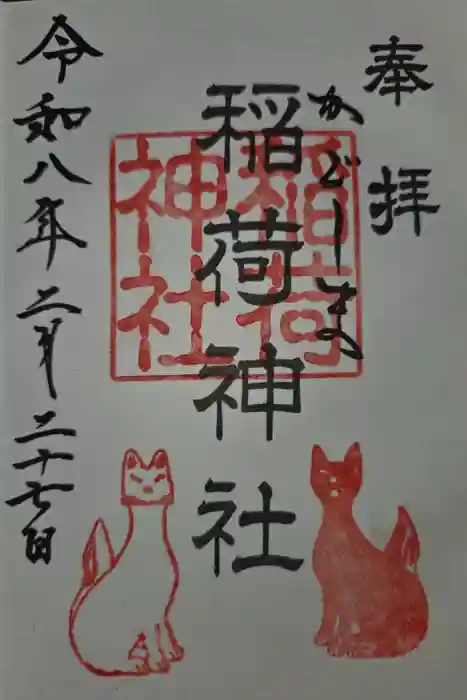 奉拝
かどしまの
稲荷神社
稲荷神社
令和八年二月二十七日